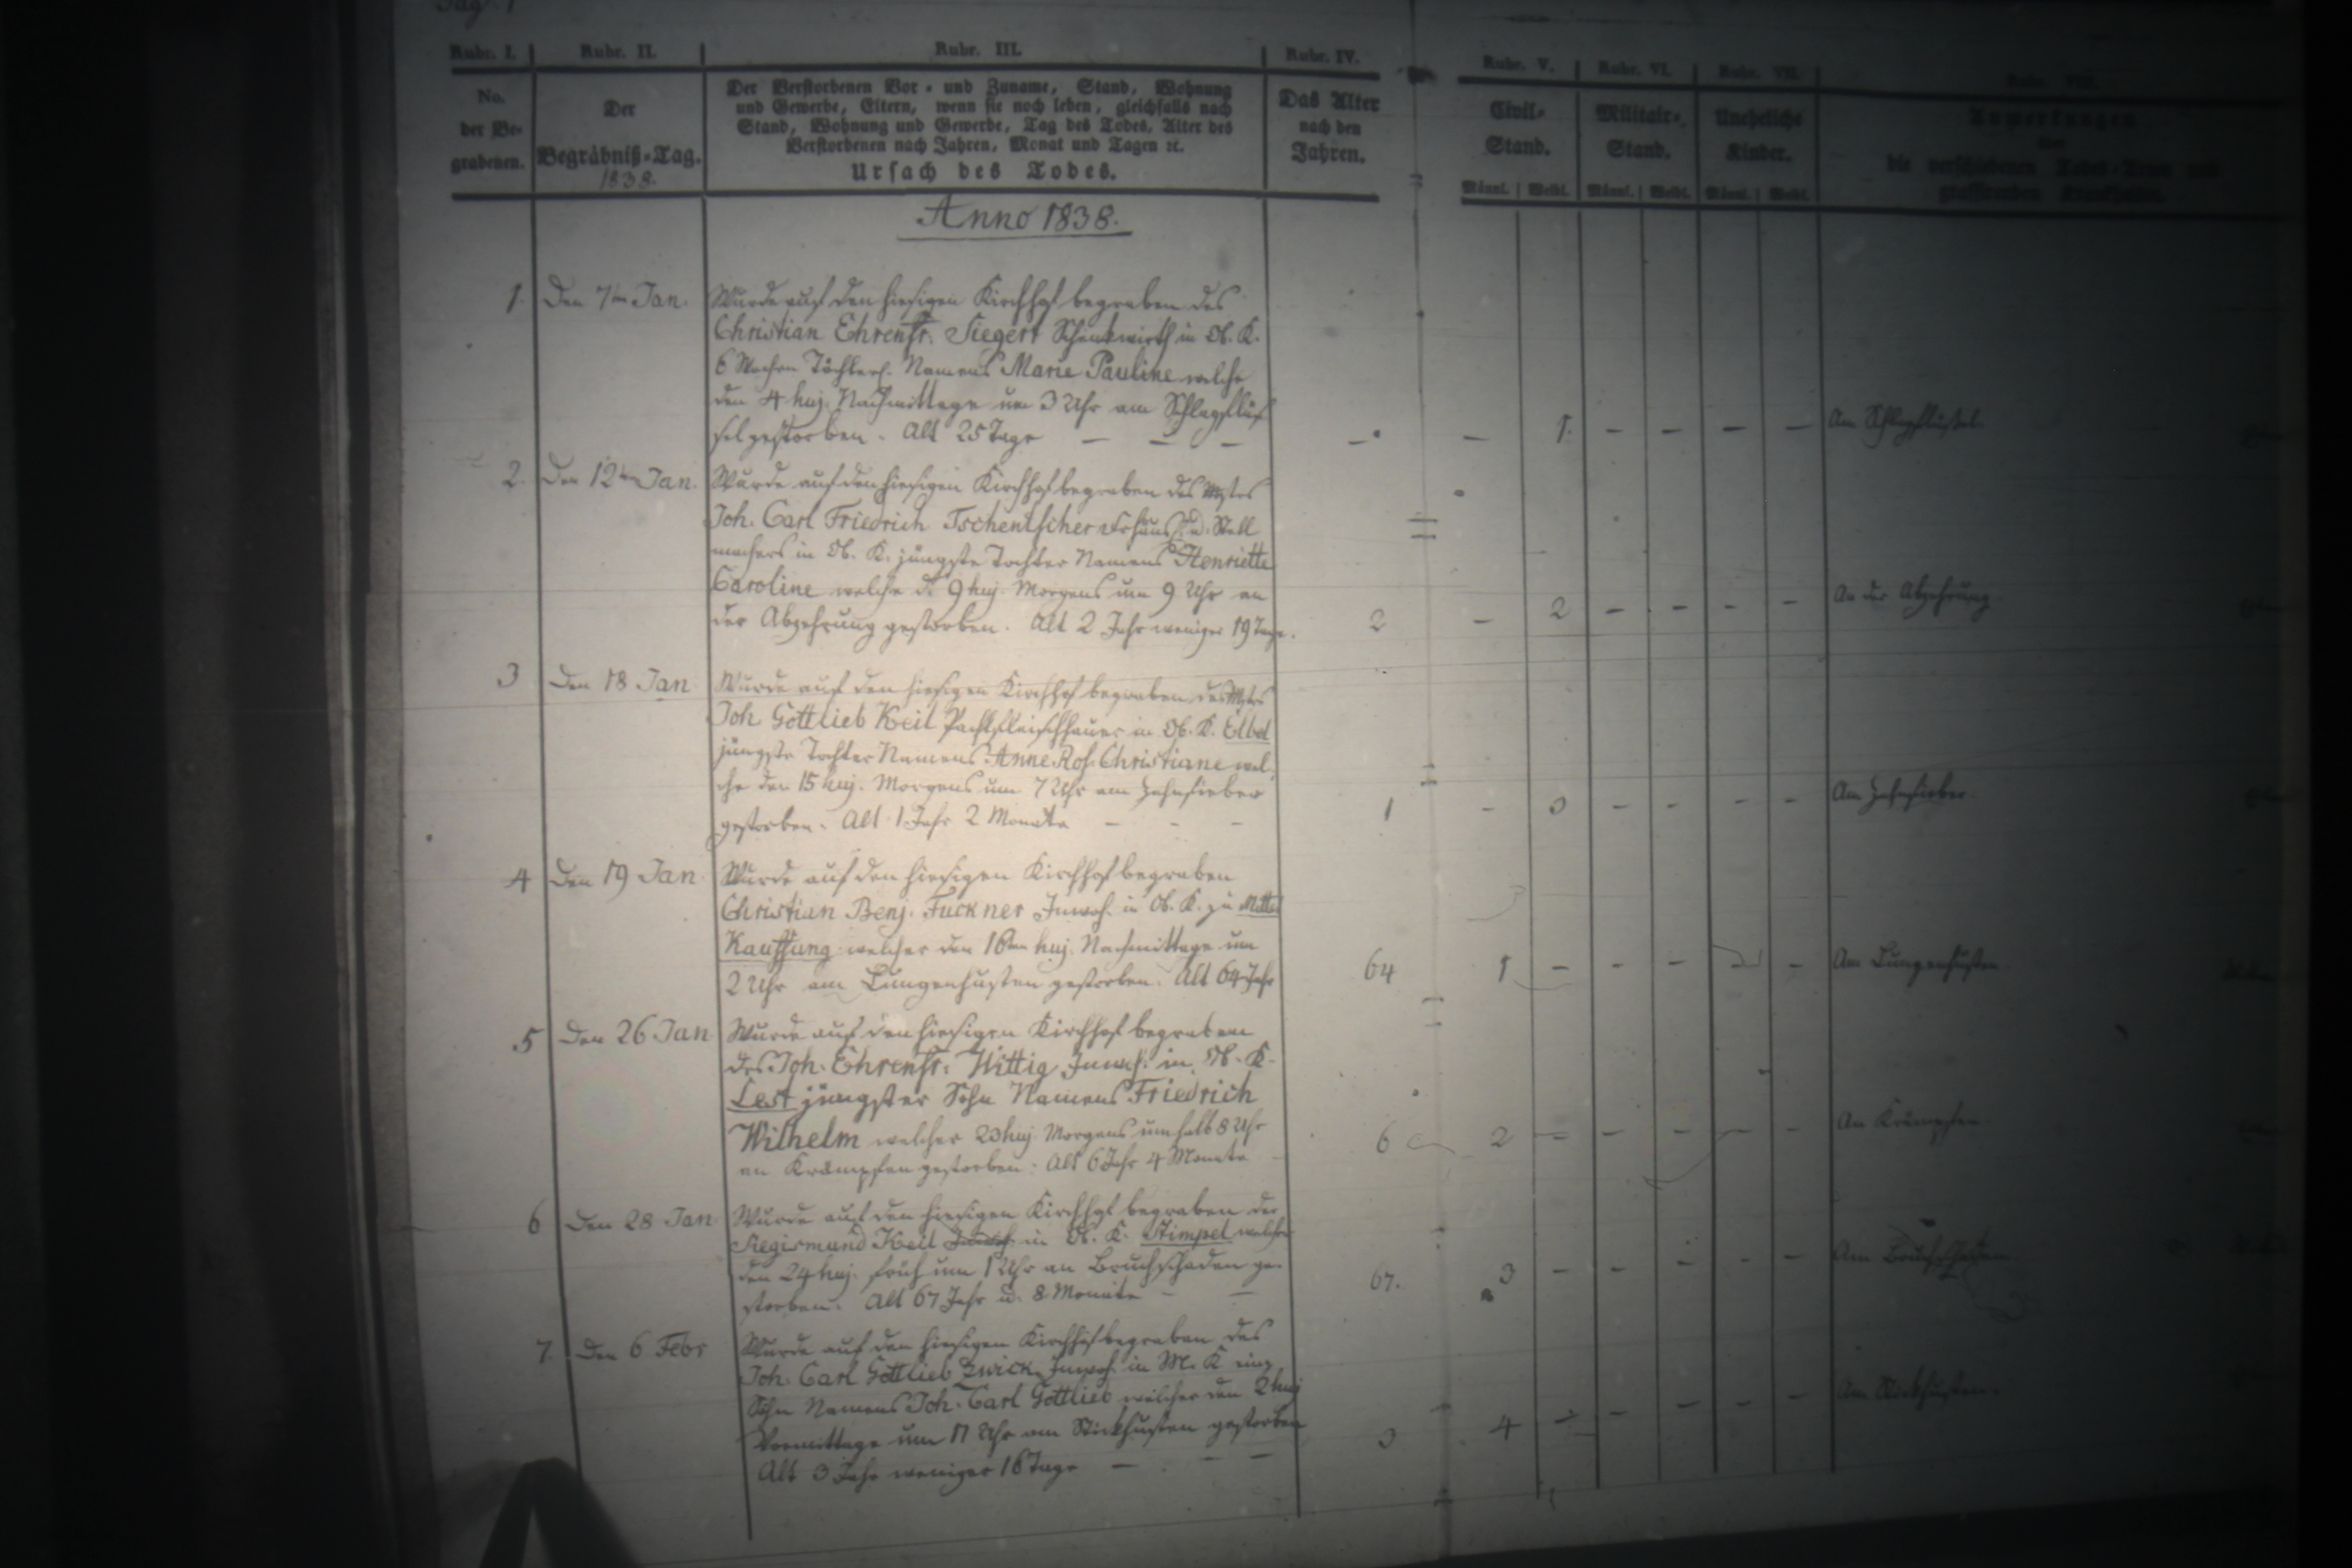 Pag. 1
Rubr. I. Rubr. II. Rubr. III. Rubr. IV. Rubr. V. Rubr. VI. Rubr. VII. Rubr. VIII.
No.
der Be-
grabenen.
Der
Begräbniß-Tag.
1838.
Der Verstorbenen Vor- und Zuname, Stand, Wohnung
und Gewerbe, Eltern, wenn sie noch leben, gleichfalls nach
Stand, Wohnung und Gewerbe, Tag des Todes, Alter des
Verstorbenen nach Jahren, Monat und Tagen ec.
Ursach des Todes.
Das Alter
nach den
Jahren.
Civil-
Stand.
Männl. Weibl.
Militair-
Stand.
Männl. Weibl.
Uneheliche
Kinder.
Männl. Weibl.
Anmerkungen
über
die verschiedenen Todes-Arten und
grassirenden Krankheiten.
Anno 1838.
1. Den 7ten Jan.
Wurde auf den hiesigen Kirchhof begraben des
Christian Ehrenfr. Siegert Schenkwirth in Ob. K.
6 Wochen Töchterl. Namens Marie Pauline welche
den 4 huj. Nachmittage um 3 Uhr am Schlagflüs
sel gestorben. Alt 25 Tage — — —
— — 1. — — — — Am Schlagflüssel.
2. Den 12ten Jan.
Wurde auf den hiesigen Kirchhof begraben des Mstrs
Joh. Carl Friedrich Tschentscher Frhäusl. u. Stell
machers in Ob. K. jüngste Tochter Namens Henriette
Caroline welche d. 9 huj. Morgens um 9 Uhr an
der Abzehrung gestorben. Alt 2 Jahr weniger 19 Tage.
2 — 2 — — — — An der Abzehrung
3 Den 18 Jan
Wurde auf den hiesigen Kirchhof begraben des Mstrs
Joh. Gottlieb Keil Pachtfleischhauer in Ob. K. Elbel
jüngste Tochter Namens Anne Ros. Christiane wel-
che den 15 huj. Morgens um 7 Uhr am Zahnfieber
gestorben. Alt 1 Jahr 2 Monate — — —
1 — 3 — — — — Am Zahnfieber.
4 Den 19 Jan
Wurde auf den hiesigen Kirchhof begraben
Christian Benj. Fuckner Inwoh. in Ob. K. zu Mittel
Kauffung welcher den 16ten huj. Nachmittage um
2 Uhr am Lungenhusten gestorben. Alt 64 Jahr
64 1 — — — — — Am Lungenhusten
5 Den 26 Jan
Wurde auf den hiesigen Kirchhof begraben
des Joh. Ehrenfr. Wittig Inwoh. in Ob. K.
Lest jüngster Sohn Namens Friedrich
Wilhelm welcher 23 huj. Morgens um halb 8 Uhr
an Krämpfen gestorben. Alt 6 Jahr 4 Monate
6 2 — — — — — An Krämpfen
6 Den 28 Jan
Wurde auf den hiesigen Kirchhof begraben der
Siegismund Keil in Ob. K. Stimpel welcher
den 24 huj. früh um 1 Uhr an Bruchschaden ge-
storben. Alt 67 Jahr u. 8 Monate — —
67. 3 — — — — — Am Bruchschaden
7. Den 6 Febr
Wurde auf den hiesigen Kirchhof begraben des
Joh. Carl Gottlieb Zwick Inwoh. in M. K. einz.
Sohn Namens Joh. Carl Gottlieb welcher den 2 huj
Vormittage um 11 Uhr am Stickhusten gestorben
Alt 3 Jahr weniger 16 Tage — — —
3 4 — — — — — Am Stickhusten.